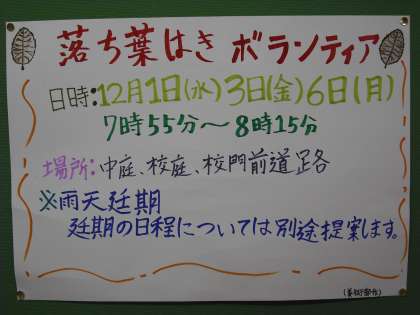 落ち葉はきボランティア
日時:12月1日(水)3日(金)6日(月)
7時55分〜8時15分
場所:中庭、校庭、校門前道路
※雨天延期
延期の日程については別途提案します。
(美術部作)